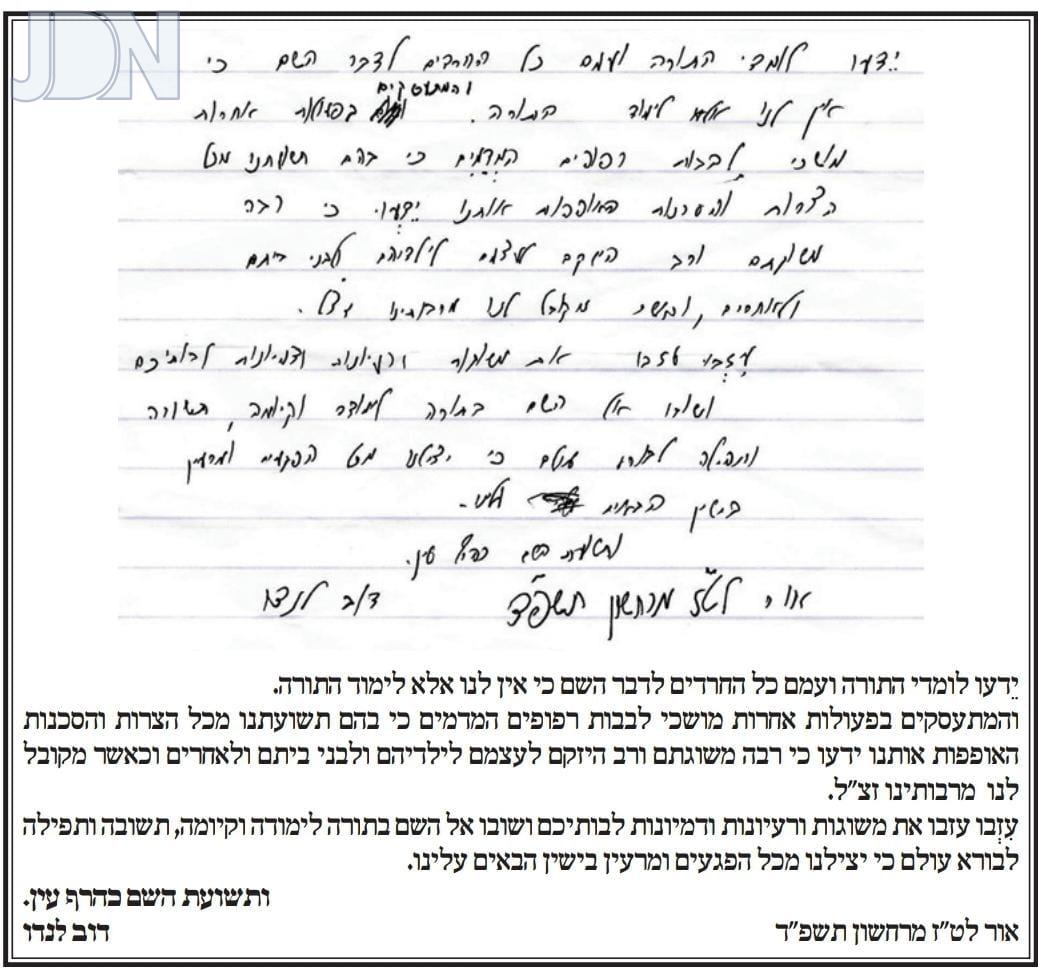 JDN
יֵדעו לומדי התורה ועמם כל החרדים לדבר השם כי
והמתעסקים
אין לנו אלא לימוד התורה. בפעולות אחרות
מושכי לבבות רפופים המְדַמִים כי בהם תשועתנו מכל
הצרות והסכנות האופפות אותנו יֵדְעוּ כי רבה
משוגתם ורב היזקם לעצמם לילדיהם ולבני ביתם
ולאחרים, וכאשר מקובל לנו מרבותינו זצ"ל.
עִזְבו עזבו את משוגות ורעיונות ודמיונות לבותיכם
ושובו אל השם בתורה לימודה וקיומה, תשובה
ותפילה לבורא עולם כי יצילנו מכל הפגעים ומרעין
בישין הבאים עלינו.
ותשועת השם כהרף עין.
אור לט"ז מרחשון תשפ"ד דוב לנדו
יֵדעו לומדי התורה ועמם כל החרדים לדבר השם כי אין לנו אלא לימוד התורה.
והמתעסקים בפעולות אחרות מושכי לבבות רפופים המדמים כי בהם תשועתנו מכל הצרות והסכנות
האופפות אותנו ידעו כי רבה משוגתם ורב היזקם לעצמם לילדיהם ולבני ביתם ולאחרים וכאשר מקובל
לנו מרבותינו זצ"ל.
עִזְבו עזבו את משוגות ורעיונות ודמיונות לבותיכם ושובו אל השם בתורה לימודה וקיומה, תשובה ותפילה
לבורא עולם כי יצילנו מכל הפגעים ומרעין בישין הבאים עלינו.
ותשועת השם כהרף עין.
אור לט"ז מרחשון תשפ"ד דוב לנדו